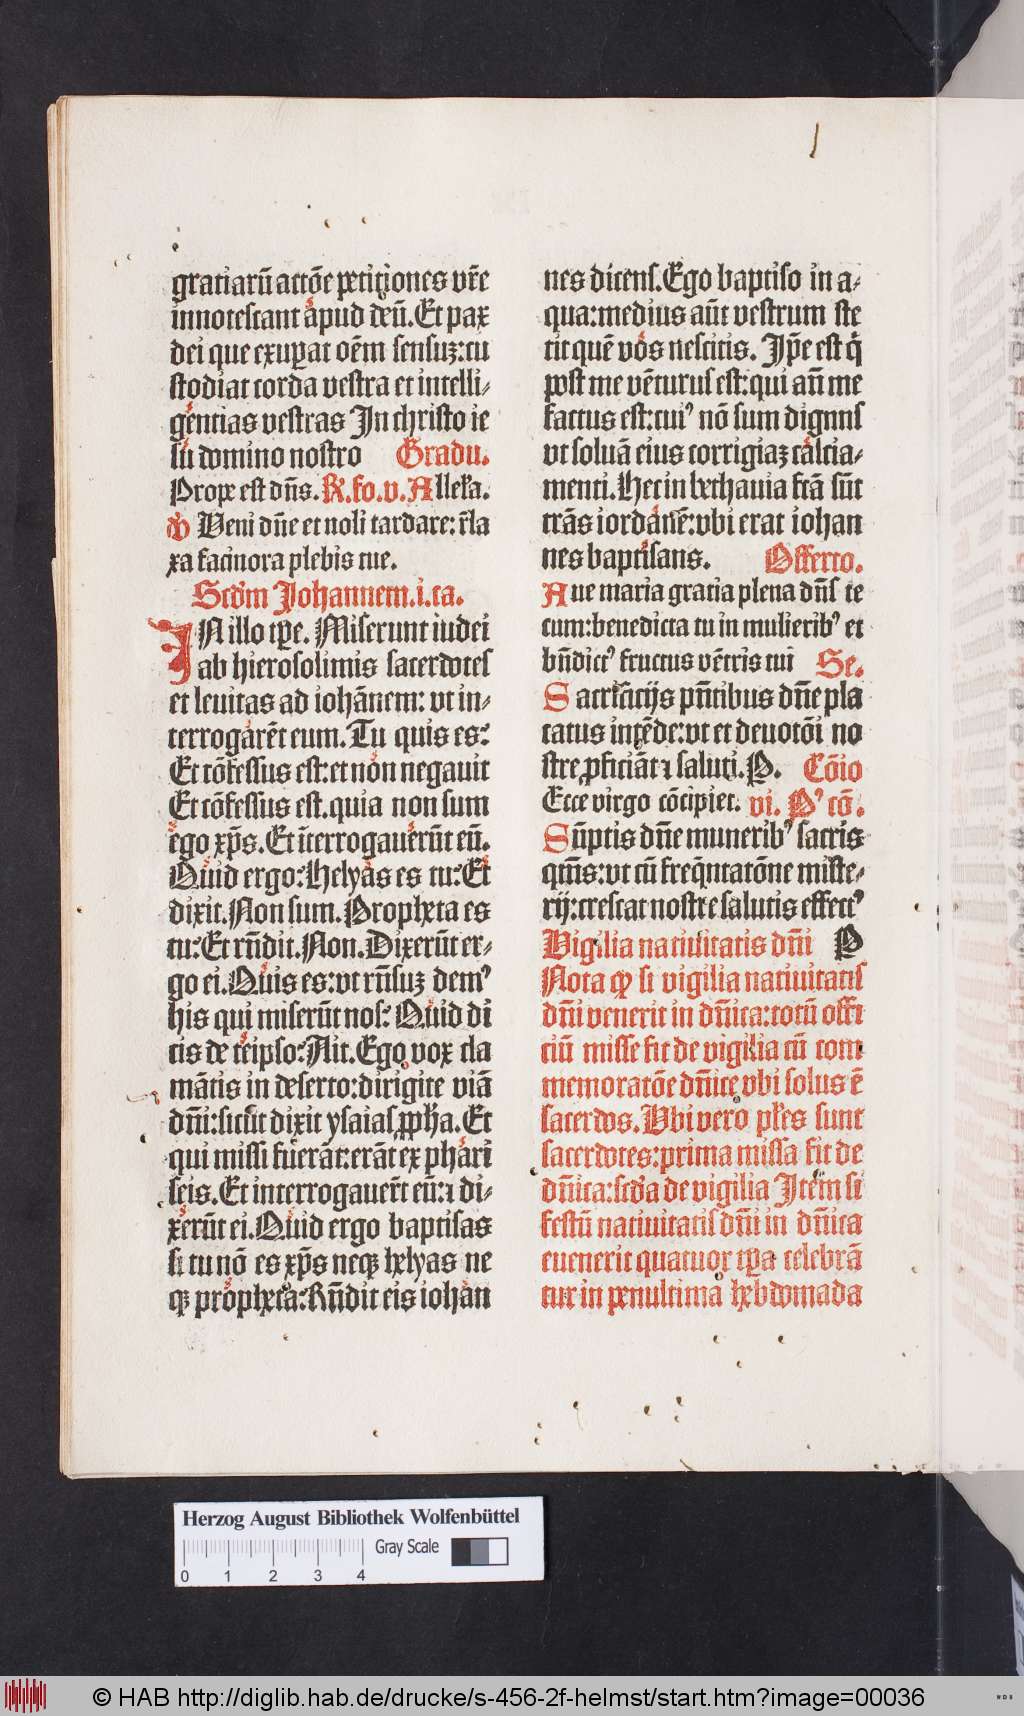 gratiarū actōe petitiones vr̄e
innotescant apud deū. Et pax
dei que exupat oēm sensuꝫ: cu
stodiat corda vestra et intelli⸗
gentias vestras In christo ie
su domino nostro Gradu.
Prope est dn̄s. R. fo. v. Allel'a.
V Veni dn̄e et noli tardare: r̄la
xa facinora plebis tue.
Scd'm Johannem. i. ca.
IN illo tꝑe. Miserunt iudei
ab hierosolimis sacerdotes
et leuitas ad iohānem: vt in⸗
terrogarēt eum. Tu quis es?
Et cōfessus est: et non negauit
Et cōfessus est. quia non sum
ego xp̄s. Et īterrogauerūt eū.
Quid ergo? Helyas es tu? Et
dixit. Non sum. Propheta es
tu? Et rn̄dit. Non. Dixerūt er⸗
go ei. Quis es: vt rn̄suꝫ dem⁹
his qui miserūt nos? Quid di
cis de teipso? Ait. Ego vox cla
mātis in deserto: dirigite viā
dn̄i: sicut dixit ysaias ꝓph'a. Et
qui missi fuerāt: erāt ex phari
seis. Et interrogauer̄t eū: ⁊ di⸗
xerūt ei. Quid ergo baptisas
si tu nō es xp̄s neqꝫ helyas ne
qꝫ propheta? Rn̄dit eis iohan
nes dicens. Ego baptiso in a⸗
qua: medius aūt vestrum ste
tit quē vos nescitis. Ip̄e est q̇
post me vēturus est: qui an̄ me
factus est: cui⁹ nō sum dignus
vt soluā eius corrigiaꝫ calcia⸗
menti. Hec in bethania fcā sūt
trās iordanē: vbi erat iohan
nes baptisans. Offerto.
Aue maria gratia plena dn̄s te
cum: benedicta tu in mulierib⁹ et
bn̄dict⁹ fructus vētris tui Se.
Sacrificijs pn̄tibus dn̄e pla
catus intēde: vt et deuotōi no
stre ꝓficiāt ⁊ saluti. P. Cōio
Ecce virgo cōcipiet. vi. P⁹ cō.
Sūptis dn̄e munerib⁹ sacris
qm̄s: vt cū freq̄ntatōne miste⸗
rij: crescat nostre salutis effect⁹
Vigilia natiuitatis dn̄i P
Nota ꝙ si vigilia natiuitatis
dn̄i venerit in dn̄ica: totū offi
ciū misse fit de vigilia cū com
memoratōe dn̄ice vbi solus ē
sacerdos. Vbi vero pl'es sunt
sacerdotes: prima missa fit de
dn̄ica: scd'a de vigilia Itēm si
festū natiuitatis dn̄i in dn̄ica
euenerit quatuor tꝑa celebrā
tur in penultima hebdomada
Herzog August Bibliothek Wolfenbüttel
Gray Scale
0 1 2 3 4
© HAB http://diglib.hab.de/drucke/s-456-2f-helmst/start.htm?image=00036